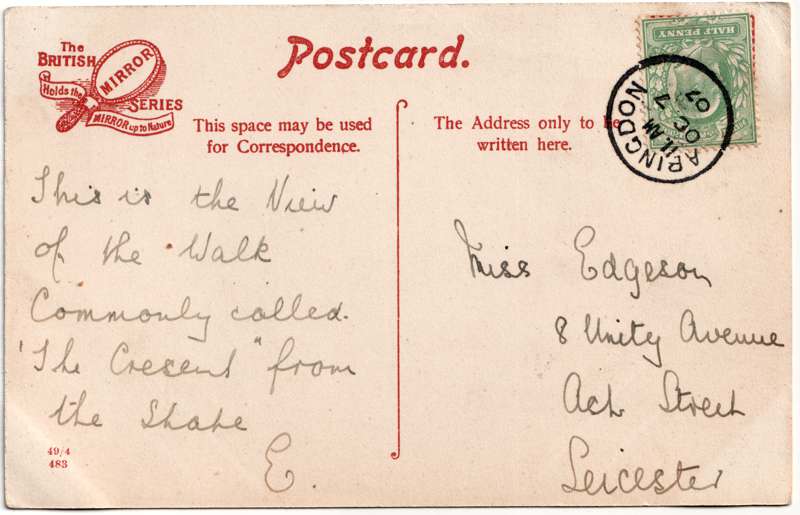 The
BRITISH
MIRROR
SERIES
Holds the
MIRROR up to Nature
Postcard.
HALF PENNY
ABINGDON
11 AM
OC 7
07
This space may be used
for Correspondence.
The Address only to be
written here.
This is the View
of the Walk
Commonly called.
'The Cresent" from
the Shape
E.
Miss Edgeson
8 Unity Avenue
Ash Street
Leicester
49/4
483